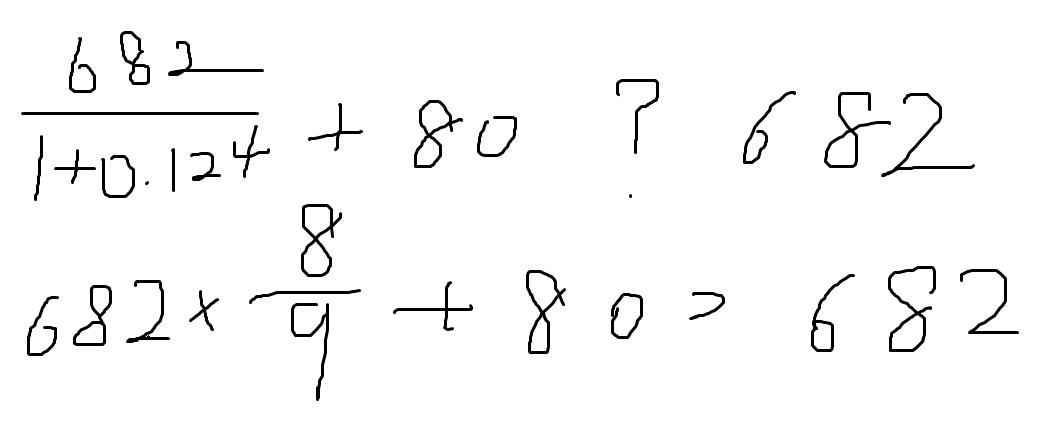 682/(1+0.124) + 80 ? 682
682 × 8/9 + 80 > 682